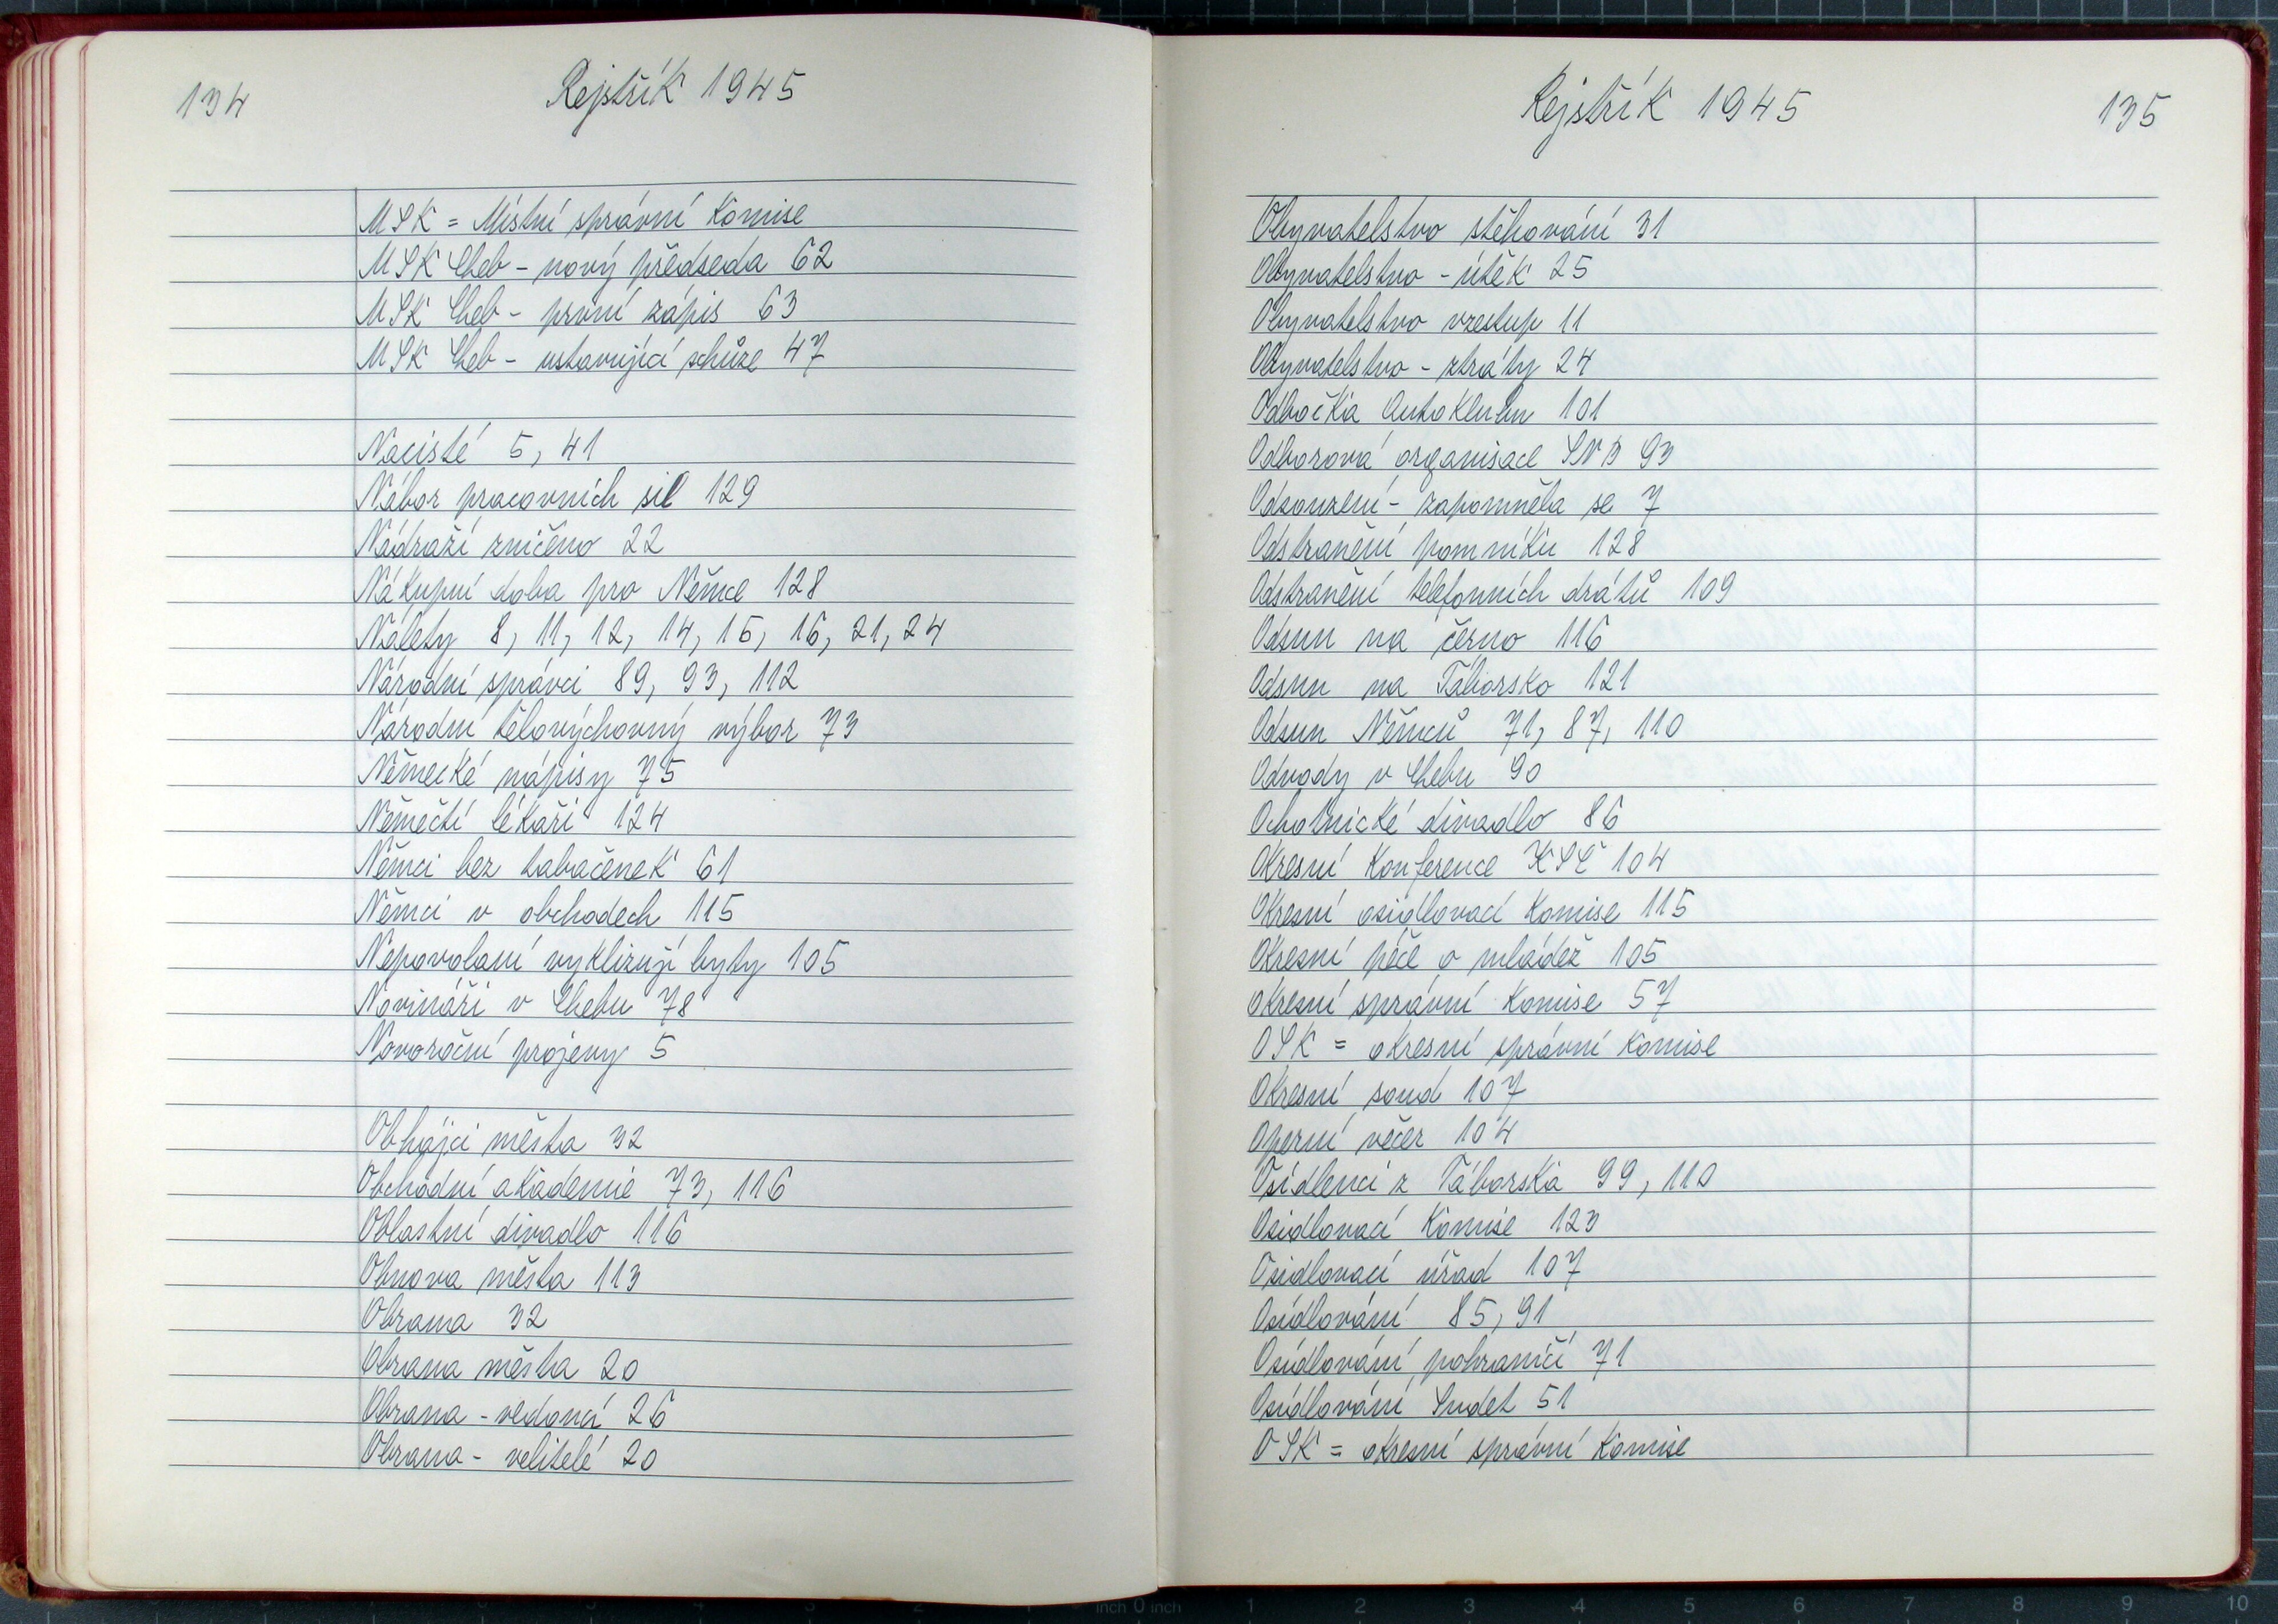 134
Rejstřík 1945
MSK = Místní správní komise
MSK Cheb - nový předseda 62
MSK Cheb - první zápis 63
MSK Cheb - ustavující schůze 47
Nacisté 5, 41
Nábor pracovních sil 129
Nádraží zničeno 22
Nákupní doba pro Němce 128
Nálety 8, 11, 12, 14, 15, 16, 21, 24
Národní správci 89, 93, 112
Národní tělovýchovný výbor 73
Německé nápisy 75
Němečtí lékaři 124
Němci bez tabačenek 61
Němci v obchodech 115
Nepovolaní vyklizují byty 105
Novináři v Chebu 78
Novoroční projevy 5
Obhájci města 32
Obchodní akademie 73, 116
Oblastní divadlo 116
Obnova města 113
Obrana 32
Obrana města 20
Obrana - vedoucí 26
Obrana - velitelé 20
Rejstřík 1945
135
Obyvatelstvo stěhování 31
Obyvatelstvo - útěk 25
Obyvatelstvo vzestup 11
Obyvatelstvo - ztráty 24
Odbočka Autoklubu 101
Odborová organisace SNB 93
Odsouzení - zapomněla se 7
Odstranění pomníků 128
Odstranění telefonních drátů 109
Odsun na černo 116
Odsun na Táborsko 121
Odsun Němců 71, 87, 110
Odvody v Chebu 90
Ochotnické divadlo 86
Okresní konference KSČ 104
Okresní osidlovací komise 115
Okresní péče o mládež 105
Okresní správní komise 57
OSK = okresní správní komise
Okresní soud 107
Operní večer 104
Osídlenci z Táborska 99, 110
Osidlovací komise 123
Osidlovací úřad 107
Osídlování 85, 91
Osídlování pohraničí 71
Osídlování Sudet 51
OSK = okresní správní komise